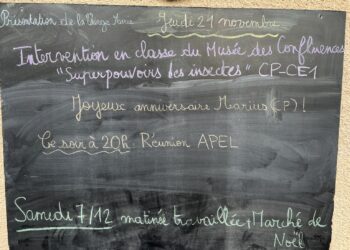 Présentation de la Vierge Marie
Jeudi 21 novembre
Intervention en classe du Musée des Confluences
"Superpouvoirs des insectes" CP-CE1
Joyeux anniversaire Marius (CP) !
Ce soir à 20h : Réunion APEL
Samedi 7/12 matinée travaillée + Marché de
Noël